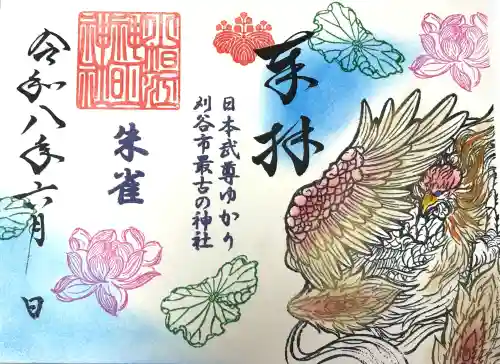 奉拝
日本武尊ゆかり
刈谷市最古の神社
小垣江
神明
神社
朱雀
令和八年六月 日